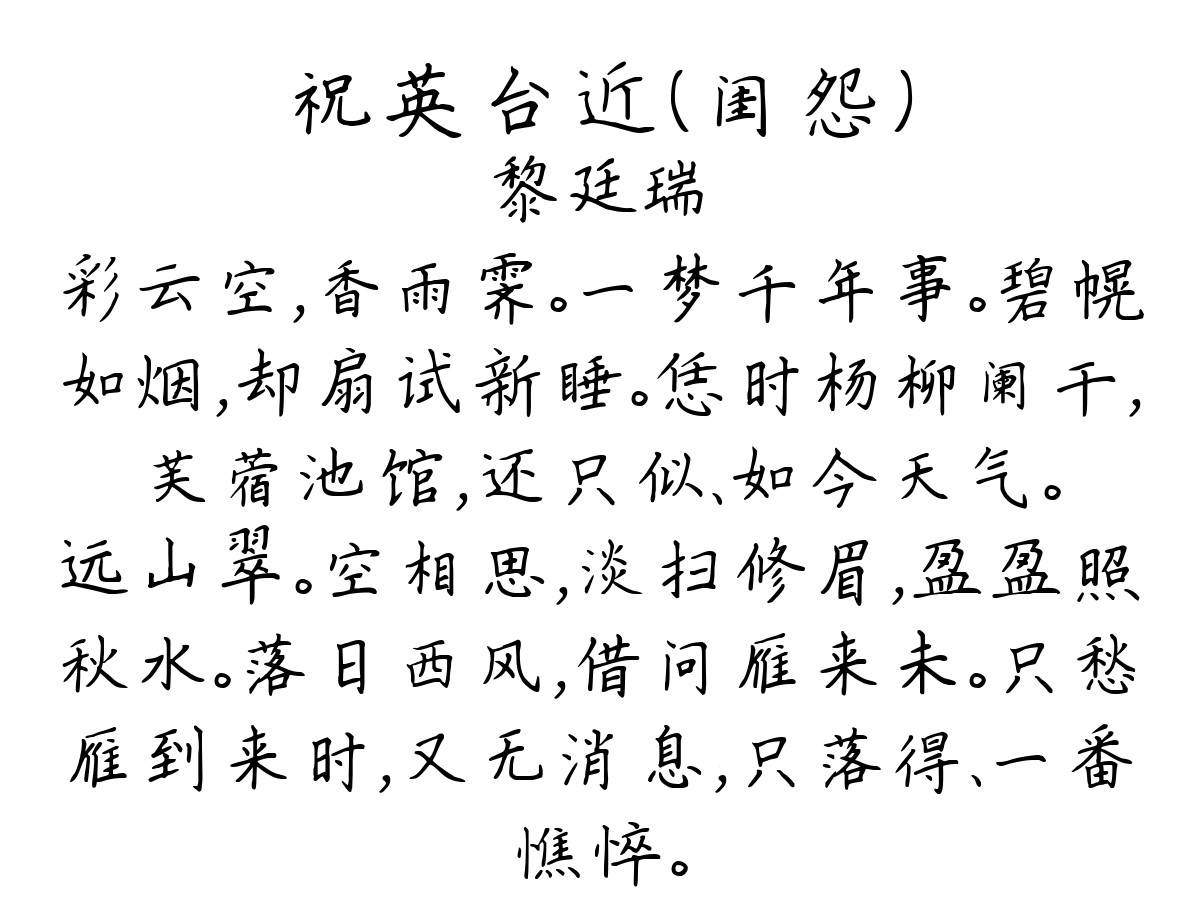 祝英台近(闺怨)
黎廷瑞
彩云空,香雨霁。一梦千年事。碧幌
如烟,却扇试新睡。恁时杨柳阑干,
芙蓿池馆,还只似、如今天气。
远山翠。空相思,淡扫修眉,盈盈照
秋水。落日西风,借问雁来未。只愁
雁到来时,又无消息,只落得、一番
憔悴。